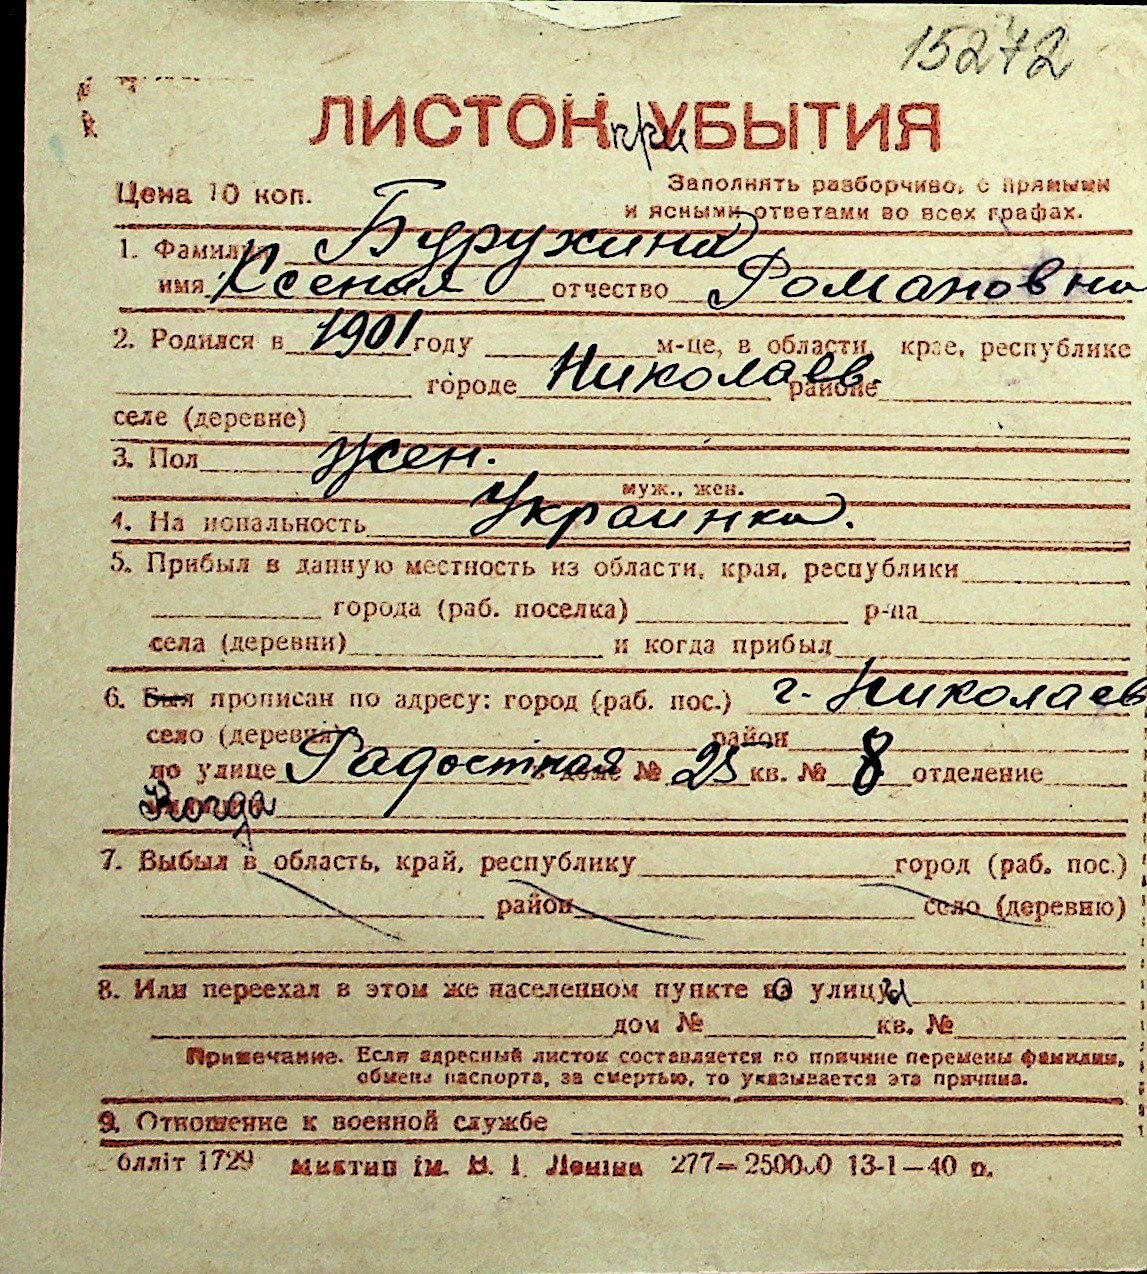 15272
ЛИСТОК при УБЫТИЯ
Цена 10 коп. Заполнять разборчиво, с прямыми
и ясными ответами во всех графах.
1. Фамилия Бурухина
имя Ксения отчество Романовна
2. Родился в 1901 году м-це, в области, крае, республике
городе Николаев районе
селе (деревне)
3. Пол жен.
муж., жен.
4. Национальность Украинка.
5. Прибыл в данную местность из области, края, республики
города (раб. поселка) р-на
села (деревни) и когда прибыл
6. Был прописан по адресу: город (раб. пос.) г. Николаев
село (деревня) район
по улице Радостная доме № 25 кв. № 8 отделение
Когда
7. Выбыл в область, край, республику город (раб. пос.)
район село (деревню)
8. Или переехал в этом же населенном пункте со улицы
дом № кв. №
Примечание. Если адресный листок составляется по причине перемены фамилии,
обмена паспорта, за смертью, то указывается эта причина.
9. Отношение к военной службе
блліт 1729 ім. В. І. Леніна 277—250000 13-1—40 р.